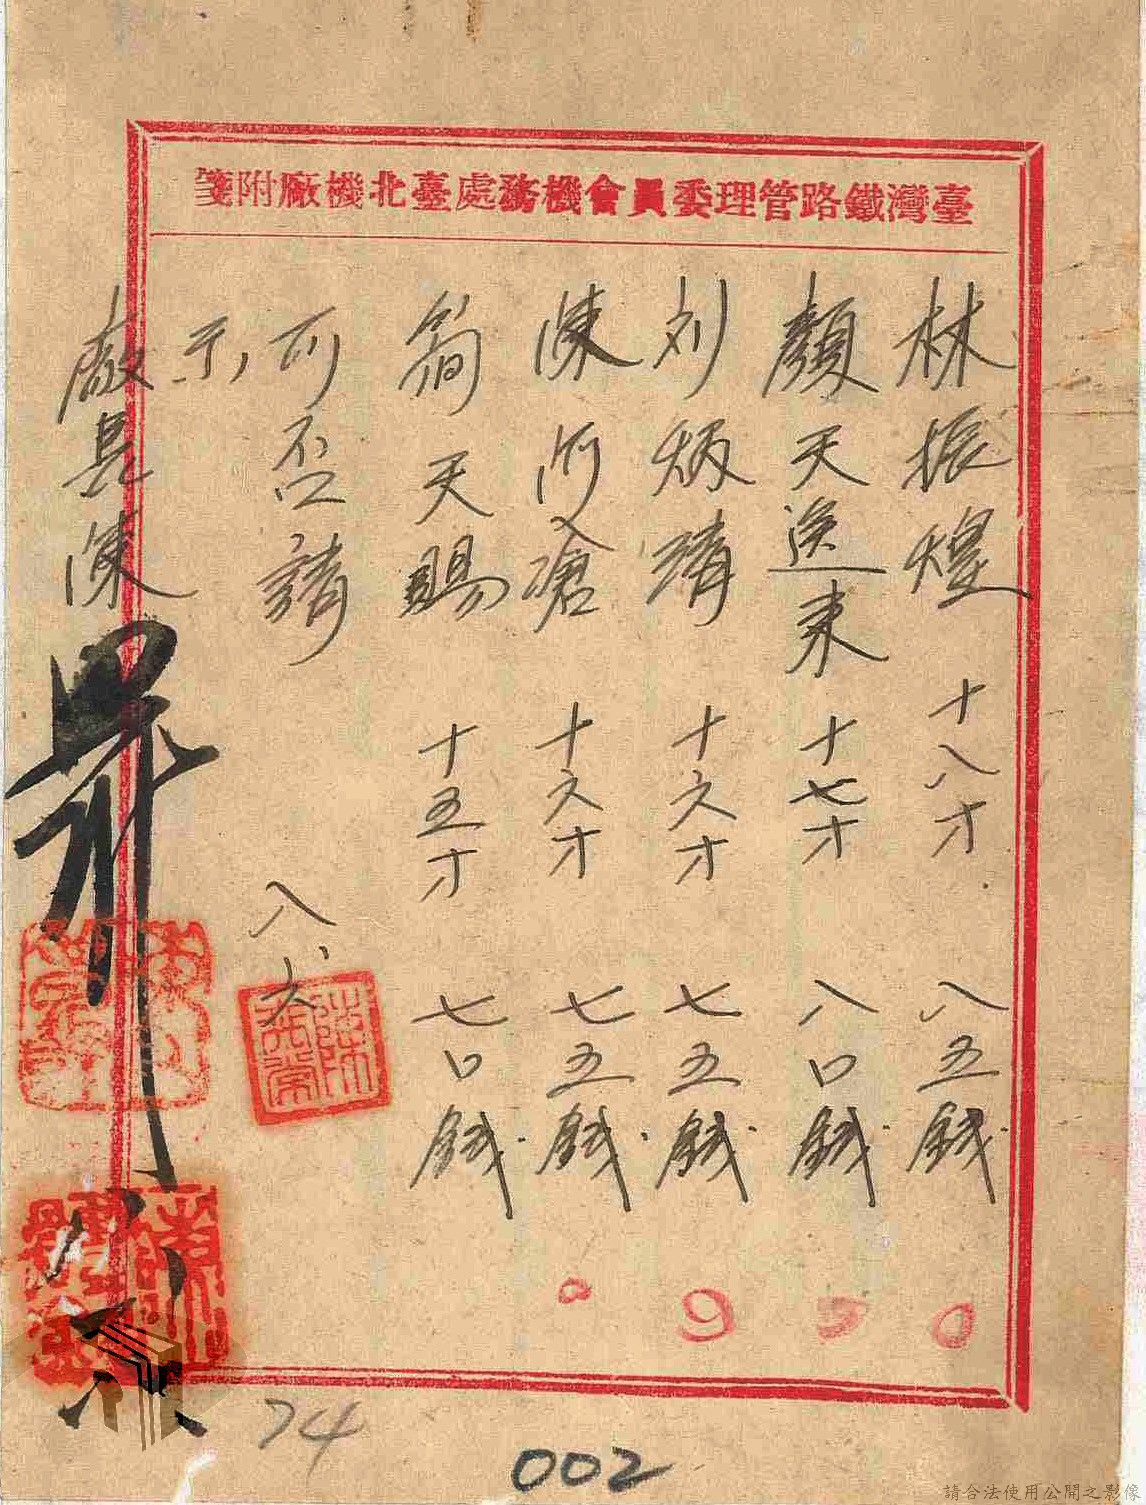 臺灣鐵路管理委員會機務處臺北機廠附箋
林振煌 十八才 八五錢
顏天送来 十七才 八〇錢
刘炳 十六才 七五錢
陳 十六才 七五錢
天賜 十五才 七〇錢
可否請
示
廠長陳
八、六
74
002
請合法使用公開之影像